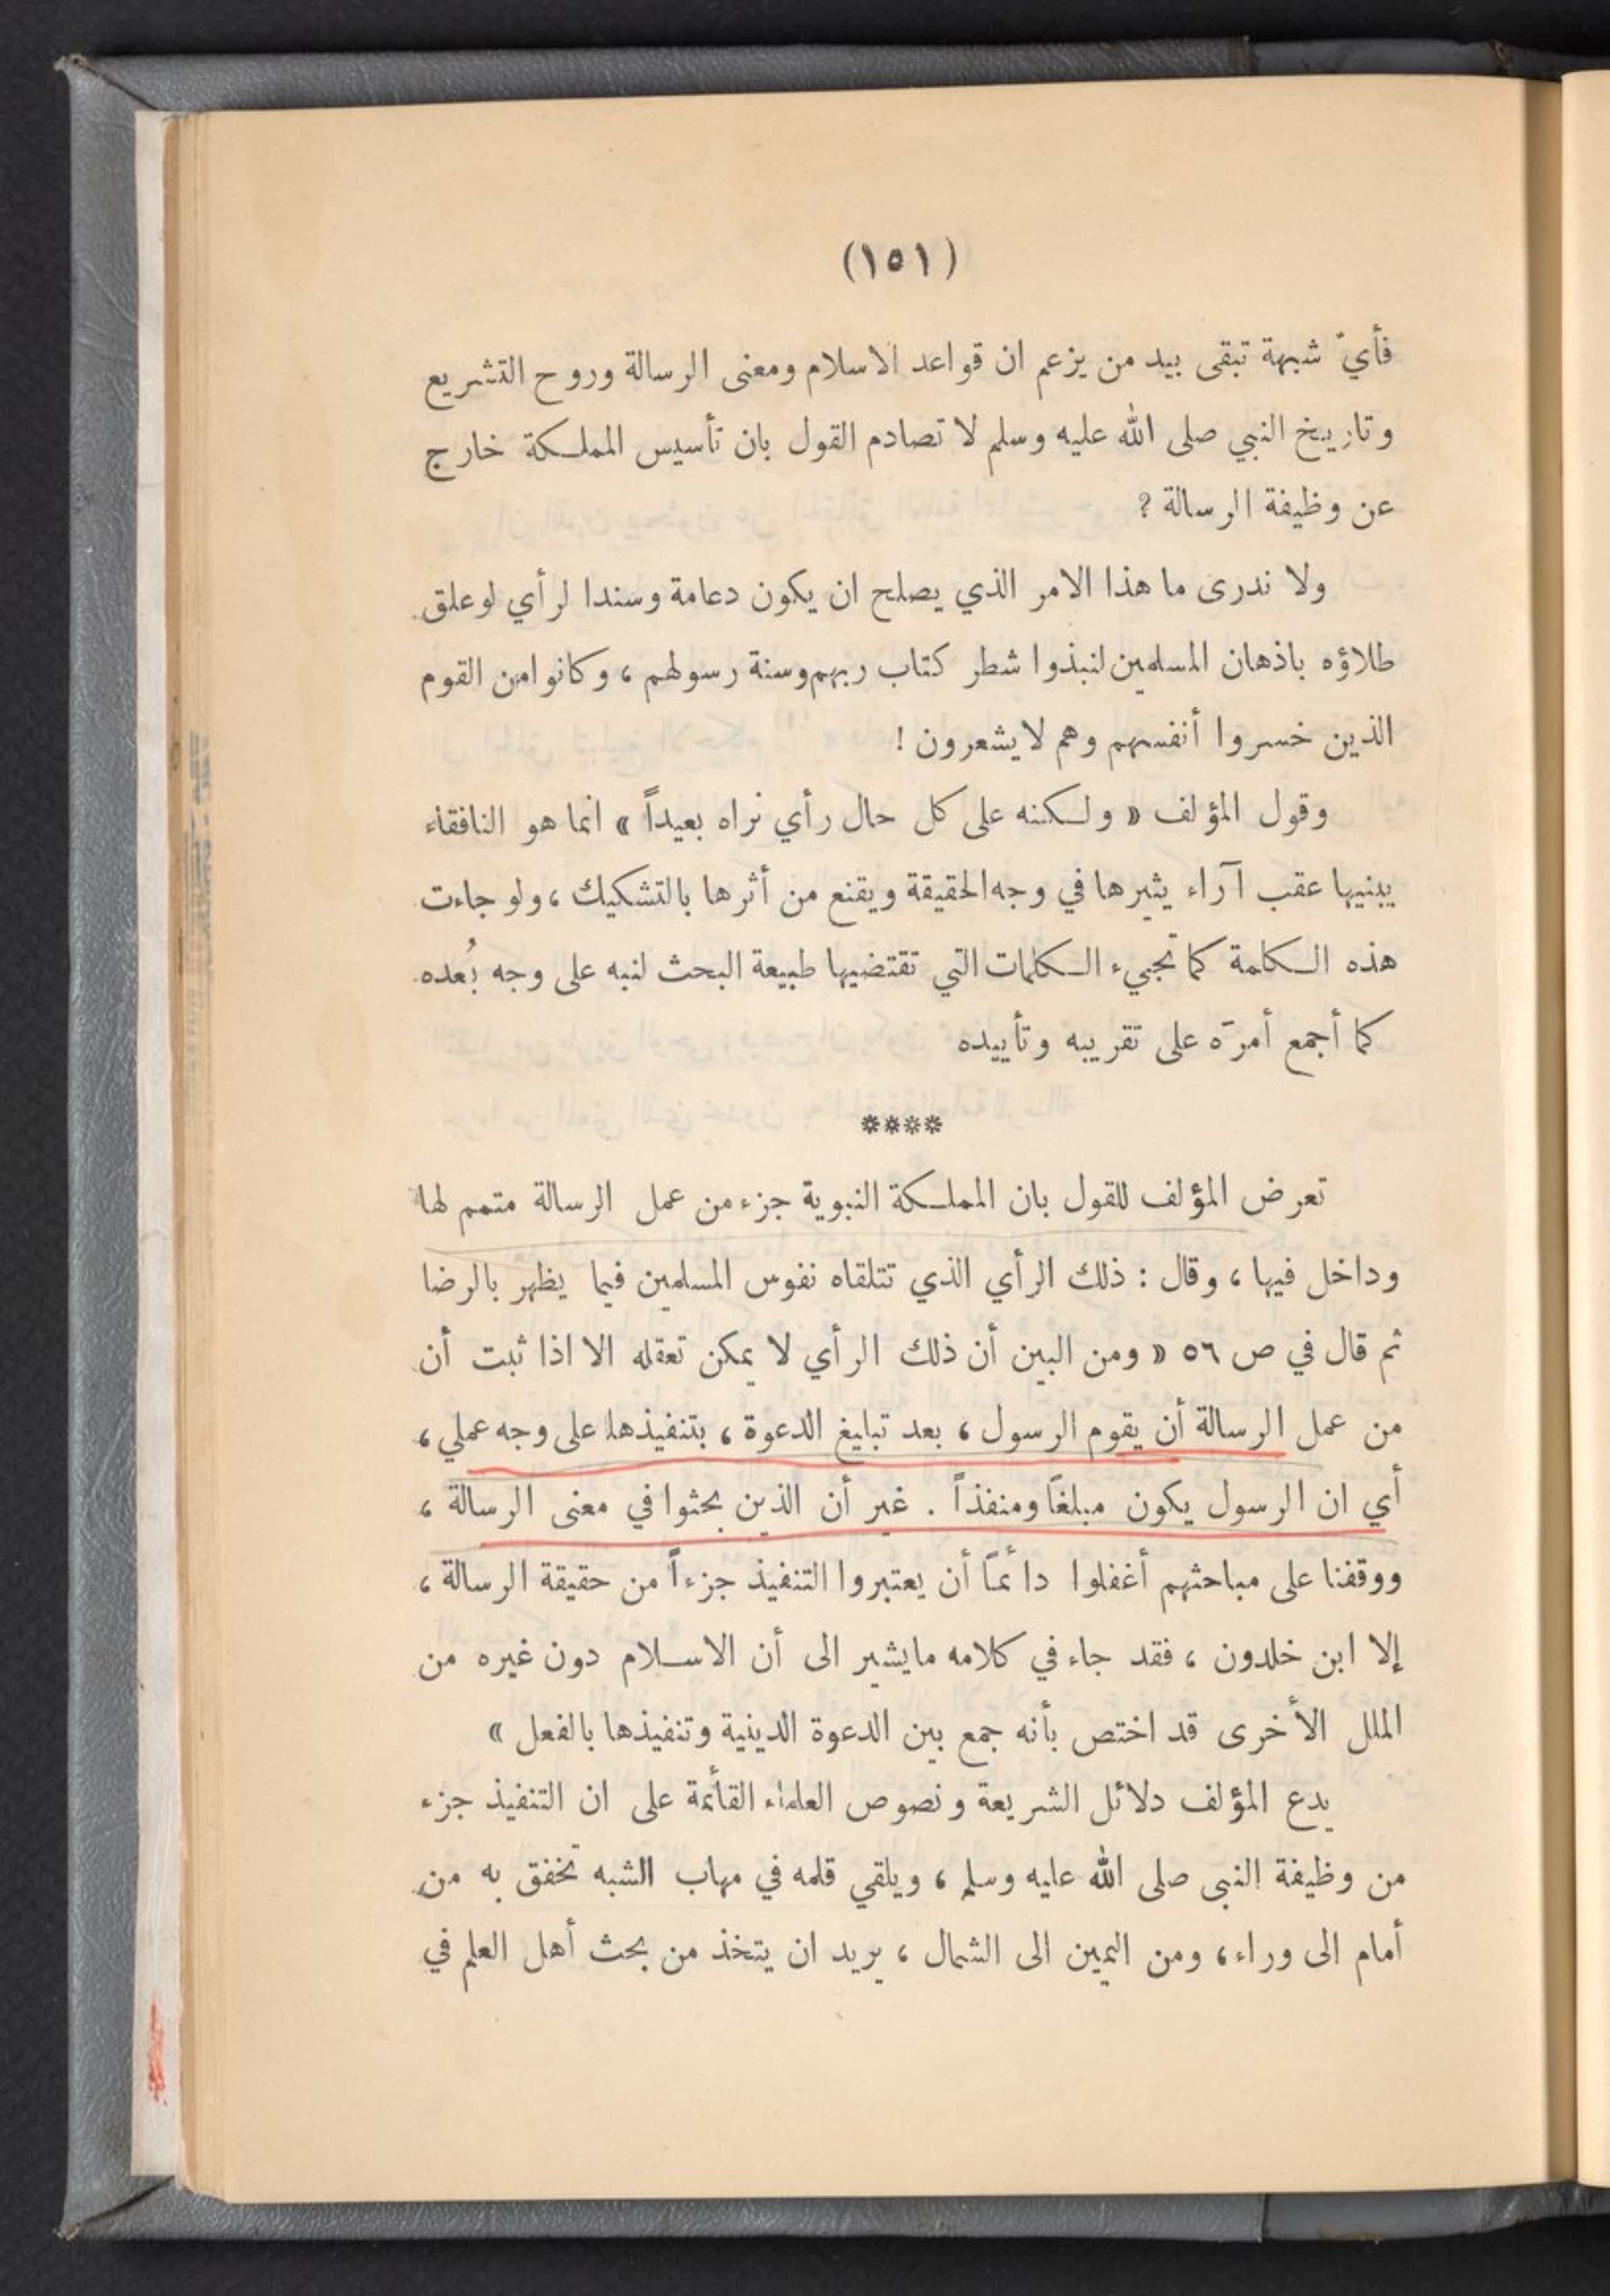 (١٥١)
فأيّ شبهة تبقى بيد من يزعم ان قواعد الاسلام ومعنى الرسالة وروح التشريع
وتاريخ النبي صلى الله عليه وسلم لا تصادم القول بان تأسيس المملكة خارج
عن وظيفة الرسالة ؟
ولا ندرى ما هذا الامر الذي يصلح ان يكون دعامة وسندا لرأي لو علق
طلاؤه باذهان المسلمين لنبذوا شطر كتاب ربهم وسنة رسولهم ، وكانوا من القوم
الذين خسروا أنفسهم وهم لا يشعرون !
وقول المؤلف « ولكنه على كل حال رأي نراه بعيداً » انما هو النافقاء
يبنيها عقب آراء يثيرها في وجه الحقيقة ويقنع من أثرها بالتشكيك ، ولو جاءت
هذه الكلمة كما تجيء الكلمات التي تقتضيها طبيعة البحث لنبه على وجه بُعده
كما أجمع أمرَه على تقريبه وتأييده
****
تعرض المؤلف للقول بان المملكة النبوية جزء من عمل الرسالة متمم لها
وداخل فيها ، وقال : ذلك الرأي الذي تتلقاه نفوس المسلمين فيما يظهر بالرضا
ثم قال في ص ٥٦ « ومن البين أن ذلك الرأي لا يمكن تعقله الا اذا ثبت أن
من عمل الرسالة أن يقوم الرسول ، بعد تبليغ الدعوة ، بتنفيذها على وجه عملي ،
أي ان الرسول يكون مبلغاً ومنفذاً . غير أن الذين بحثوا في معنى الرسالة ،
ووقفنا على مباحثهم أغفلوا دائماً أن يعتبروا التنفيذ جزءاً من حقيقة الرسالة ،
إلا ابن خلدون ، فقد جاء في كلامه ما يشير الى أن الاسلام دون غيره من
الملل الأخرى قد اختص بأنه جمع بين الدعوة الدينية وتنفيذها بالفعل »
يدع المؤلف دلائل الشريعة ونصوص العلماء القائمة على ان التنفيذ جزء
من وظيفة النبى صلى الله عليه وسلم ، ويلقي قلمه في مهاب الشبه تخفق به من
أمام الى وراء ، ومن اليمين الى الشمال ، يريد ان يتخذ من بحث أهل العلم في